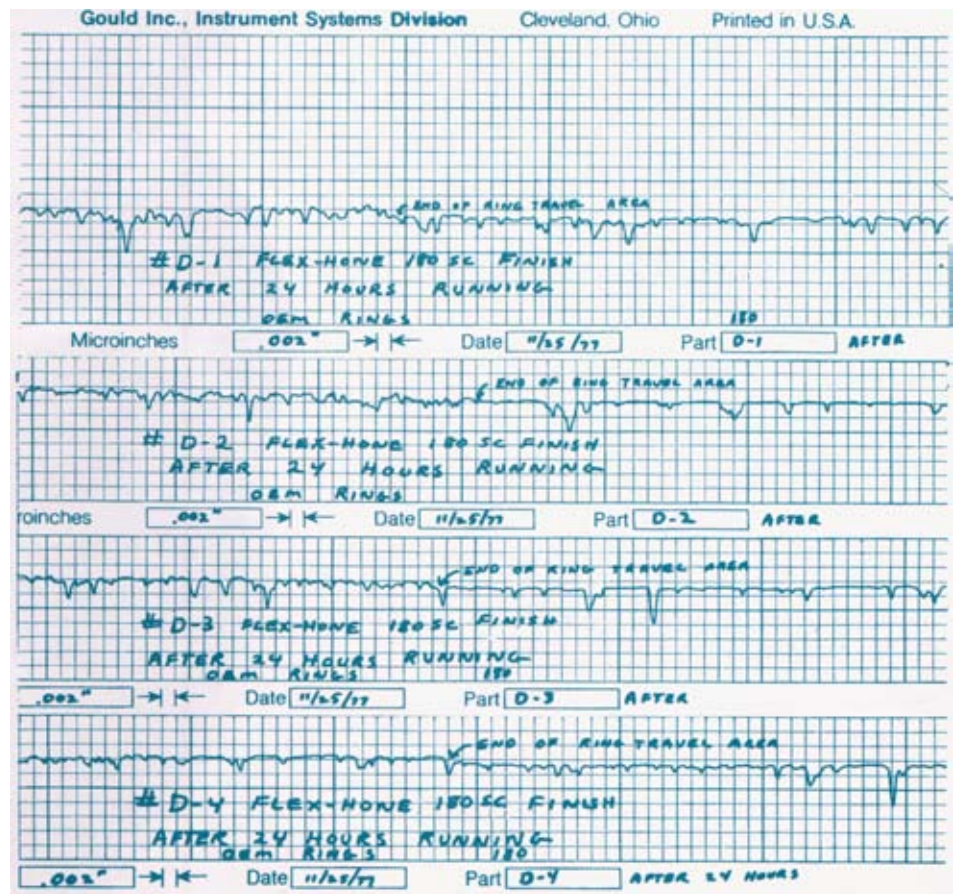 Gould Inc., Instrument Systems Division Cleveland, Ohio Printed in U.S.A.
END OF RING TRAVEL AREA
# D-1 FLEX-HONE 180 SC FINISH
AFTER 24 HOURS RUNNING
OEM RINGS 180
Microinches .002" Date 11/25/77 Part D-1 AFTER
END OF RING TRAVEL AREA
# D-2 FLEX-HONE 180 SC FINISH
AFTER 24 HOURS RUNNING
OEM RINGS
roinches .002" Date 11/25/77 Part D-2 AFTER
END OF RING TRAVEL AREA
# D-3 FLEX-HONE 180 SC FINISH
AFTER 24 HOURS RUNNING
OEM RINGS 180
.002" Date 11/25/77 Part D-3 AFTER
END OF RING TRAVEL AREA
# D-4 FLEX-HONE 180 SC FINISH
AFTER 24 HOURS RUNNING
OEM RINGS 180
.002" Date 11/25/77 Part D-4 AFTER 24 HOURS